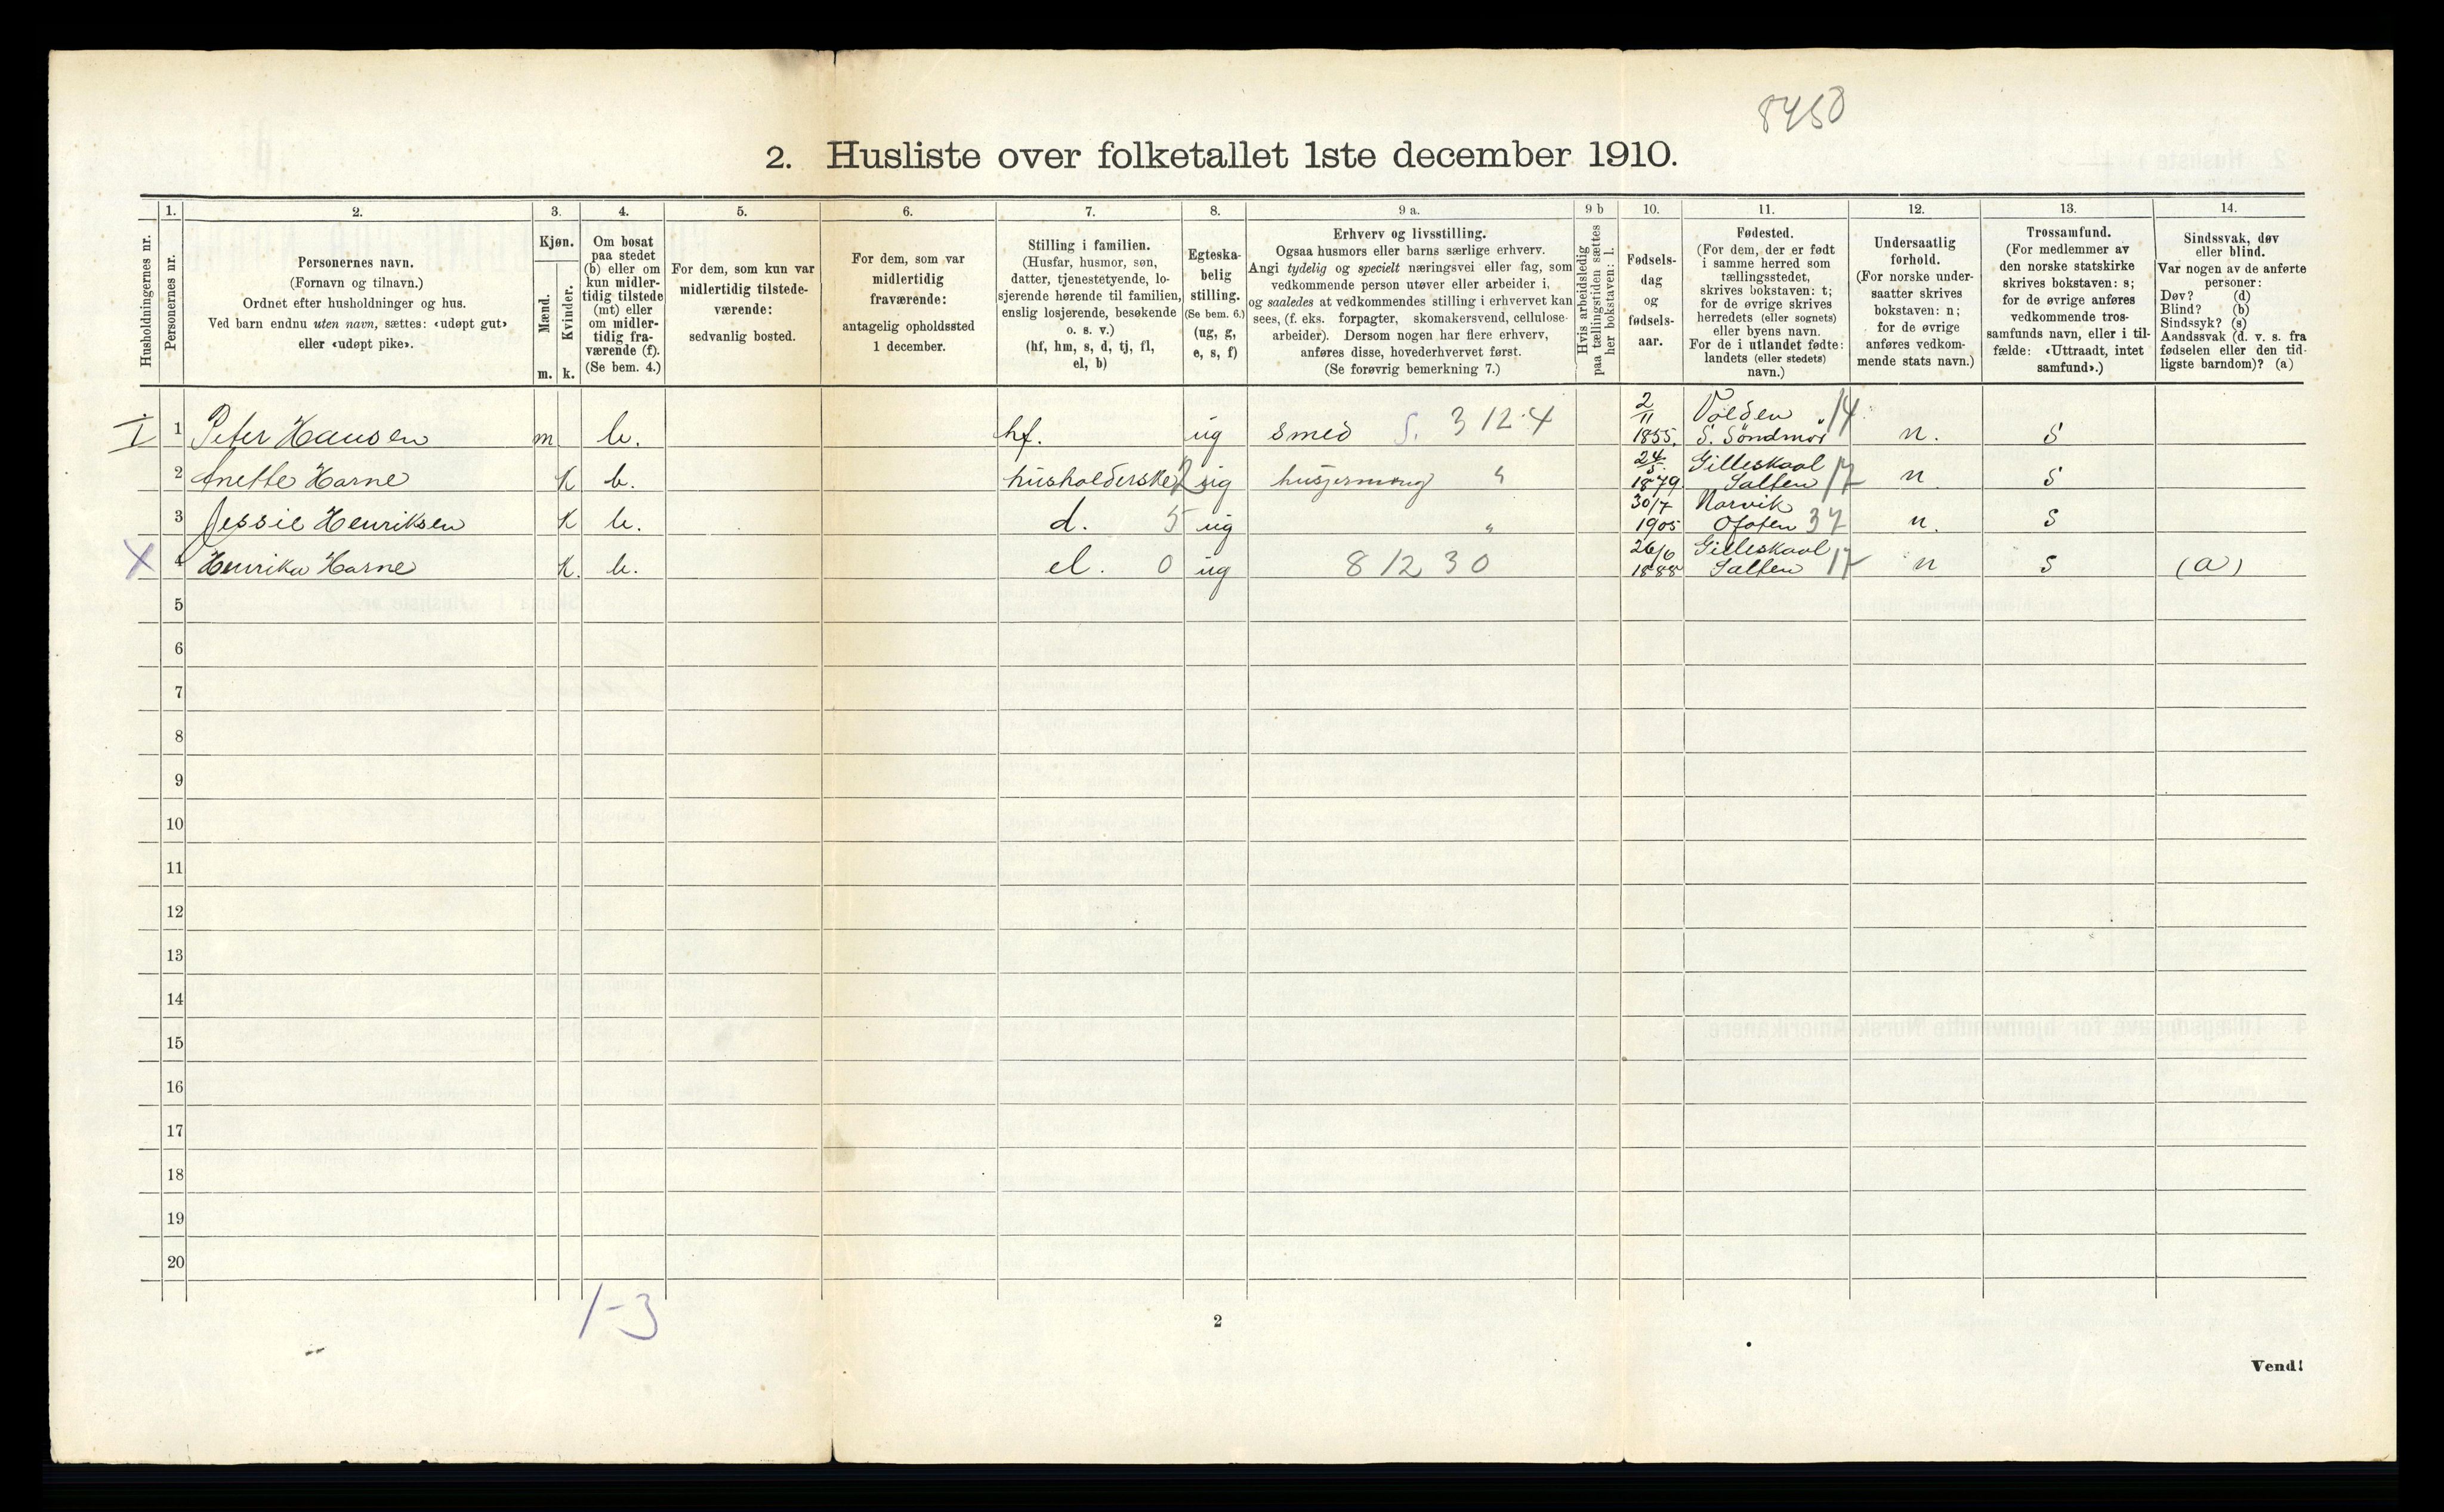 8450
2. Husliste over folketallet 1ste december 1910.
1. 2. 3. 4. 5. 6. 7. 8. 9 a. 9 b 10. 11. 12. 13. 14.
Husholdningernes nr.
Personernes nr.
Personernes navn.
(Fornavn og tilnavn.)
Ordnet efter husholdninger og hus.
Ved barn endnu uten navn, sættes: «udøpt gut»
eller «udøpt pike».
Kjøn.
Mænd.
Kvinder.
m. k.
Om bosat
paa stedet
(b) eller om
kun midler-
tidig tilstede
(mt) eller
om midler-
tidig fra-
værende (f).
(Se bem. 4.)
For dem, som kun var
midlertidig tilstede-
værende:
sedvanlig bosted.
For dem, som var
midlertidig
fraværende:
antagelig opholdssted
1 december.
Stilling i familien.
(Husfar, husmor, søn,
datter, tjenestetyende, lo-
sjerende hørende til familien,
enslig losjerende, besøkende
o. s. v.)
(hf, hm, s, d, tj, fl,
el, b)
Egteska-
belig
stilling.
(Se bem. 6.)
(ug, g,
e, s, f)
Erhverv og livsstilling.
Ogsaa husmors eller barns særlige erhverv.
Angi tydelig og specielt næringsvei eller fag, som
vedkommende person utøver eller arbeider i,
og saaledes at vedkommendes stilling i erhvervet kan
sees, (f. eks. forpagter, skomakersvend, cellulose-
arbeider). Dersom nogen har flere erhverv,
anføres disse, hovederhvervet først.
(Se forøvrig bemerkning 7.)
Hvis arbeidsledig
paa tællingstiden sættes
her bokstaven: l.
Fødsels-
dag
og
fødsels-
aar.
Fødested.
(For dem, der er født
i samme herred som
tællingsstedet,
skrives bokstaven: t;
for de øvrige skrives
herredets (eller sognets)
eller byens navn.
For de i utlandet fødte:
landets (eller stedets)
navn.)
Undersaatlig
forhold.
(For norske under-
saatter skrives
bokstaven: n;
for de øvrige
anføres vedkom-
mende stats navn.)
Trossamfund.
(For medlemmer av
den norske statskirke
skrives bokstaven: s;
for de øvrige anføres
vedkommende tros-
samfunds navn, eller i til-
fælde: «Uttraadt, intet
samfund».)
Sindssvak, døv
eller blind.
Var nogen av de anførte
personer:
Døv? (d)
Blind? (b)
Sindssyk? (s)
Aandssvak (d. v. s. fra
fødselen eller den tid-
ligste barndom)? (a)
I 1 Peter Hansen m b. hf. ug smed S. 3 12 4 2/11 1855. Volden S. Söndmör 14 n. S
2 Anette Harne K b. husholderske 2 ug husgerning " 24/5. 1879 Gilleskaal Salten 17 n S
3 Jessie Henriksen K b. d. 5 ug " 30/7 1905 Narvik Ofoten 37 n. S
X 4 Henrika Harne K. b. el. 0 ug 8 12 3 0 26/6 1888 Gilleskaal Salten 17 n S (a)
5
6
7
8
9
10
11
12
13
14
15
16
17
18
19
20
1-3
2
Vend!